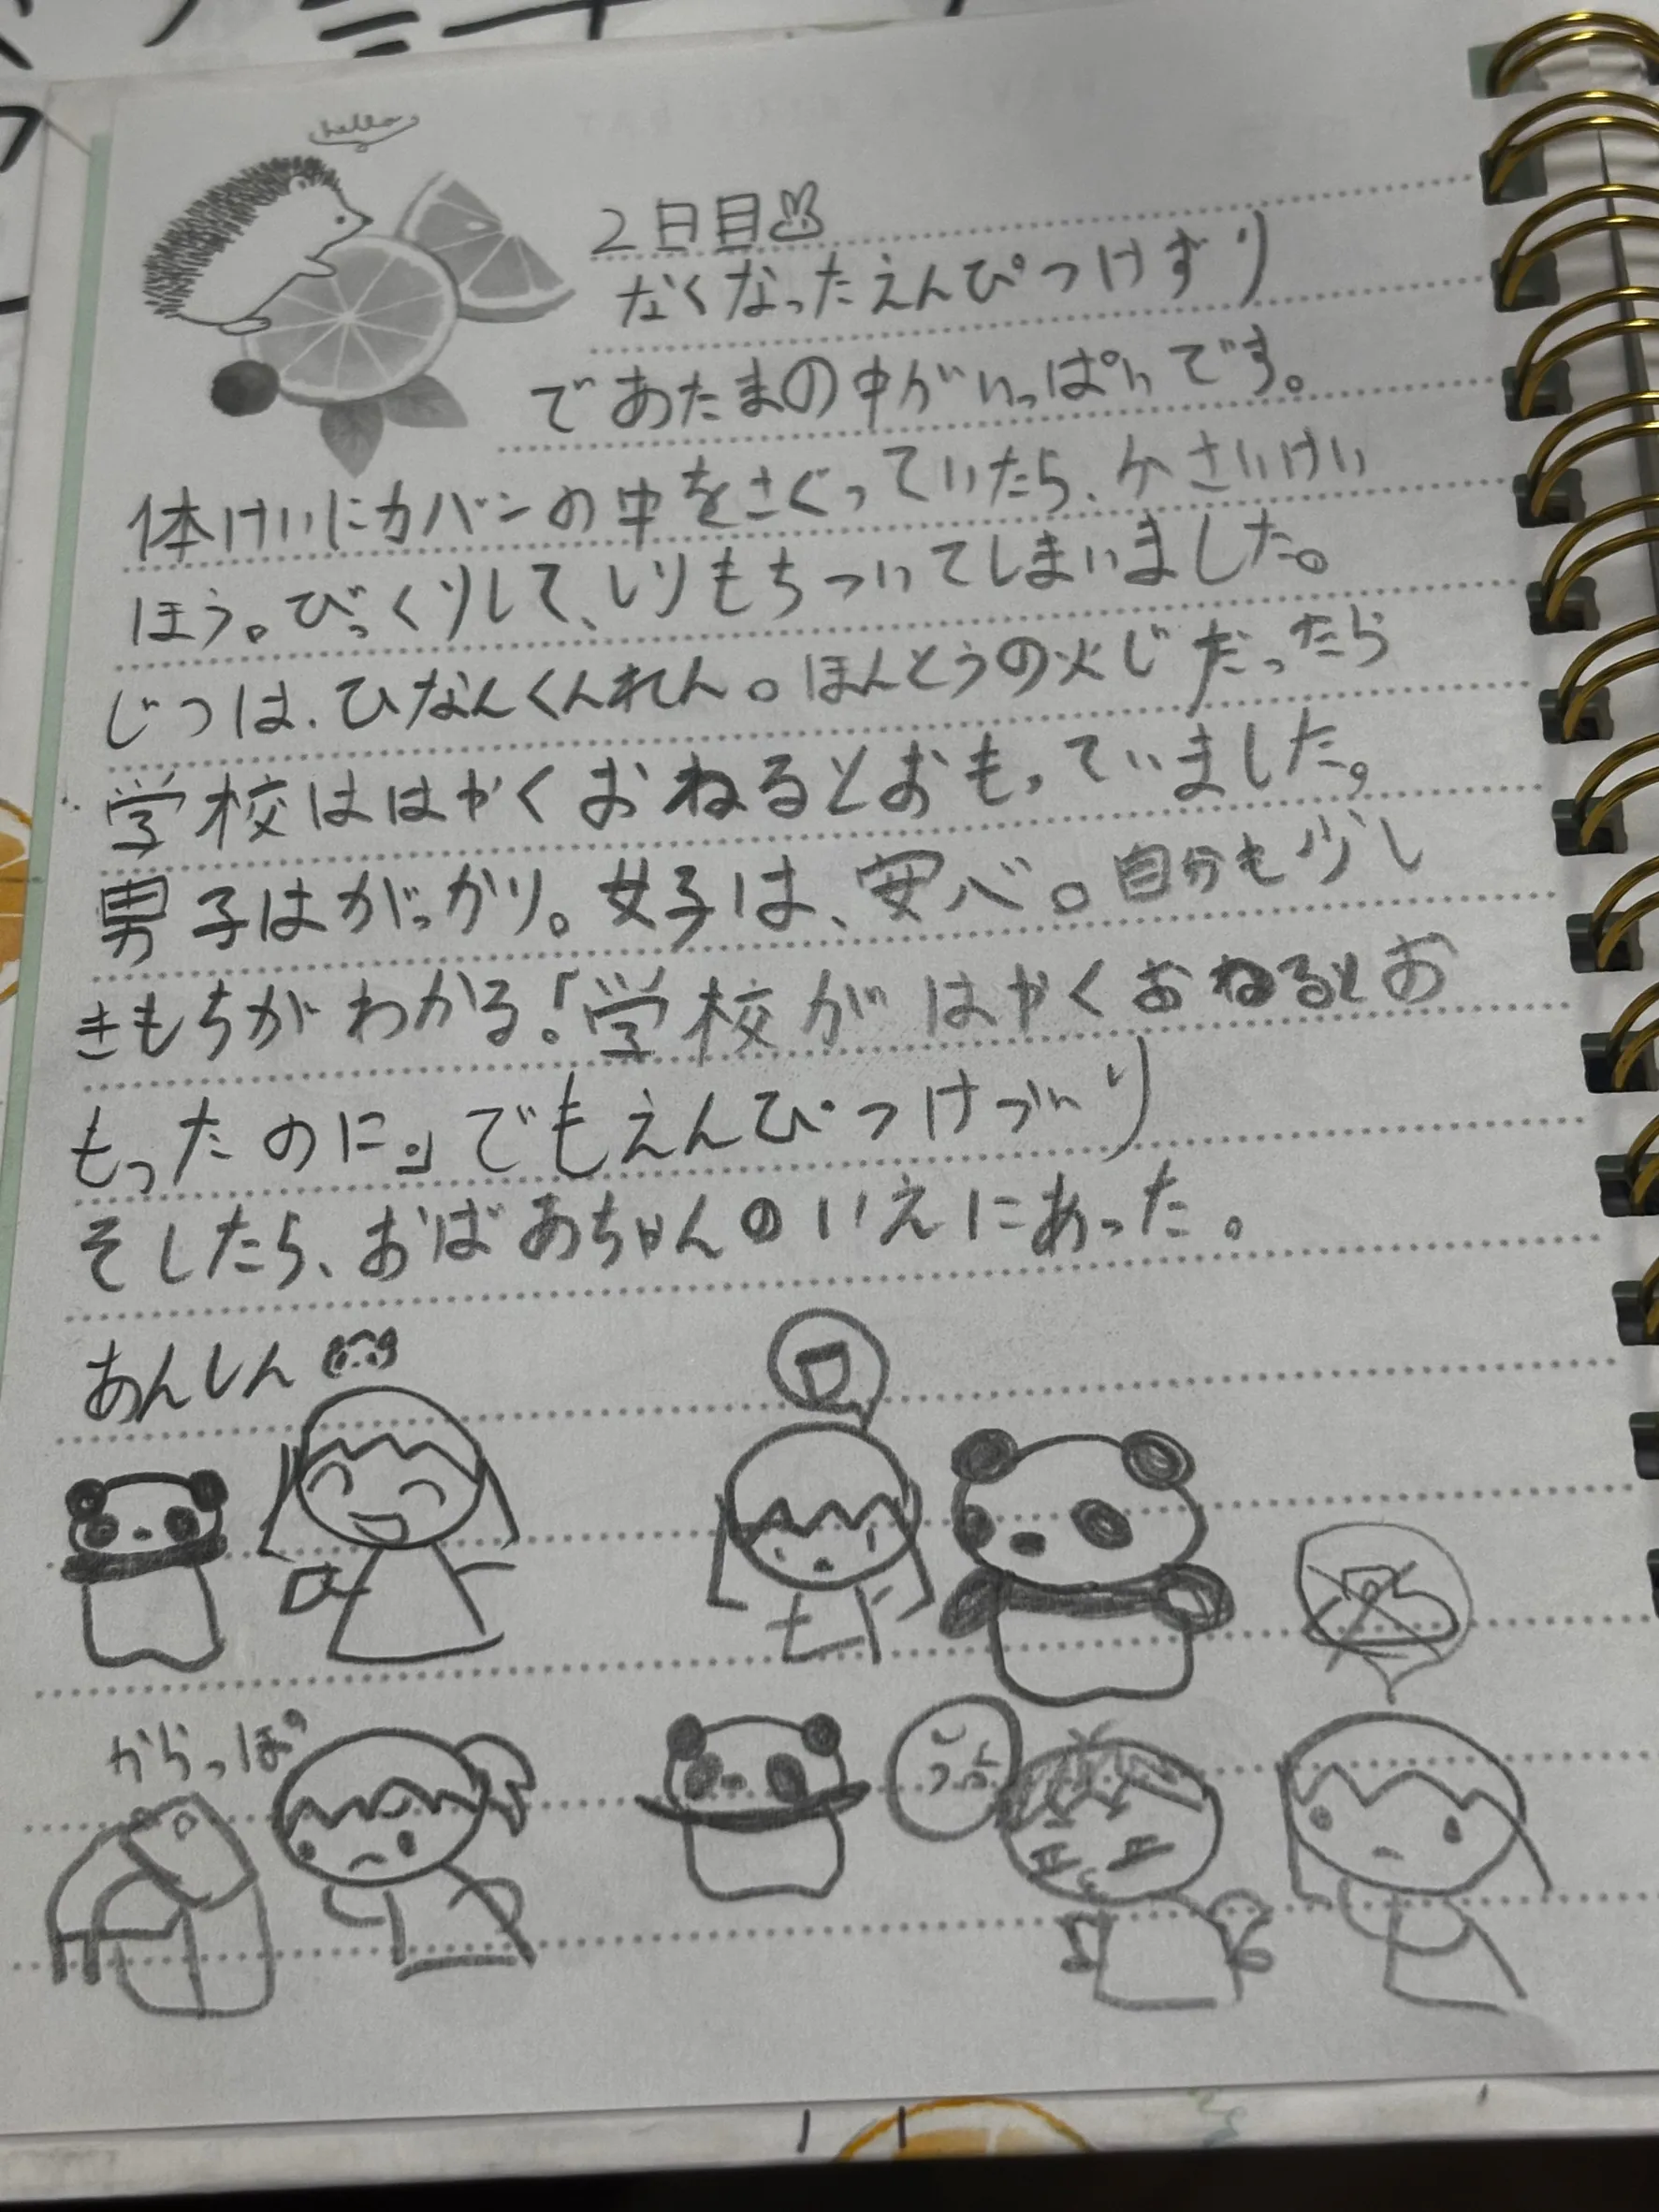 hello
2日目
なくなったえんぴつけずり
であたまの中がいっぱいです。
体けいにカバンの中をさぐっていたら、かさいけい
ほう。びっくりして、しりもちついてしまいました。
じつは、ひなんくんれん。ほんとうの火じだったら
学校ははやくおねるとおもっていました。
男子はがっかり。女子は、安心。自分も少し
きもちがわかる!「学校がはやくおねるとお
もったのに。」でもえんぴつけづり
そしたら、おばあちゃんのいえにあった。
あんしん
からっぽ